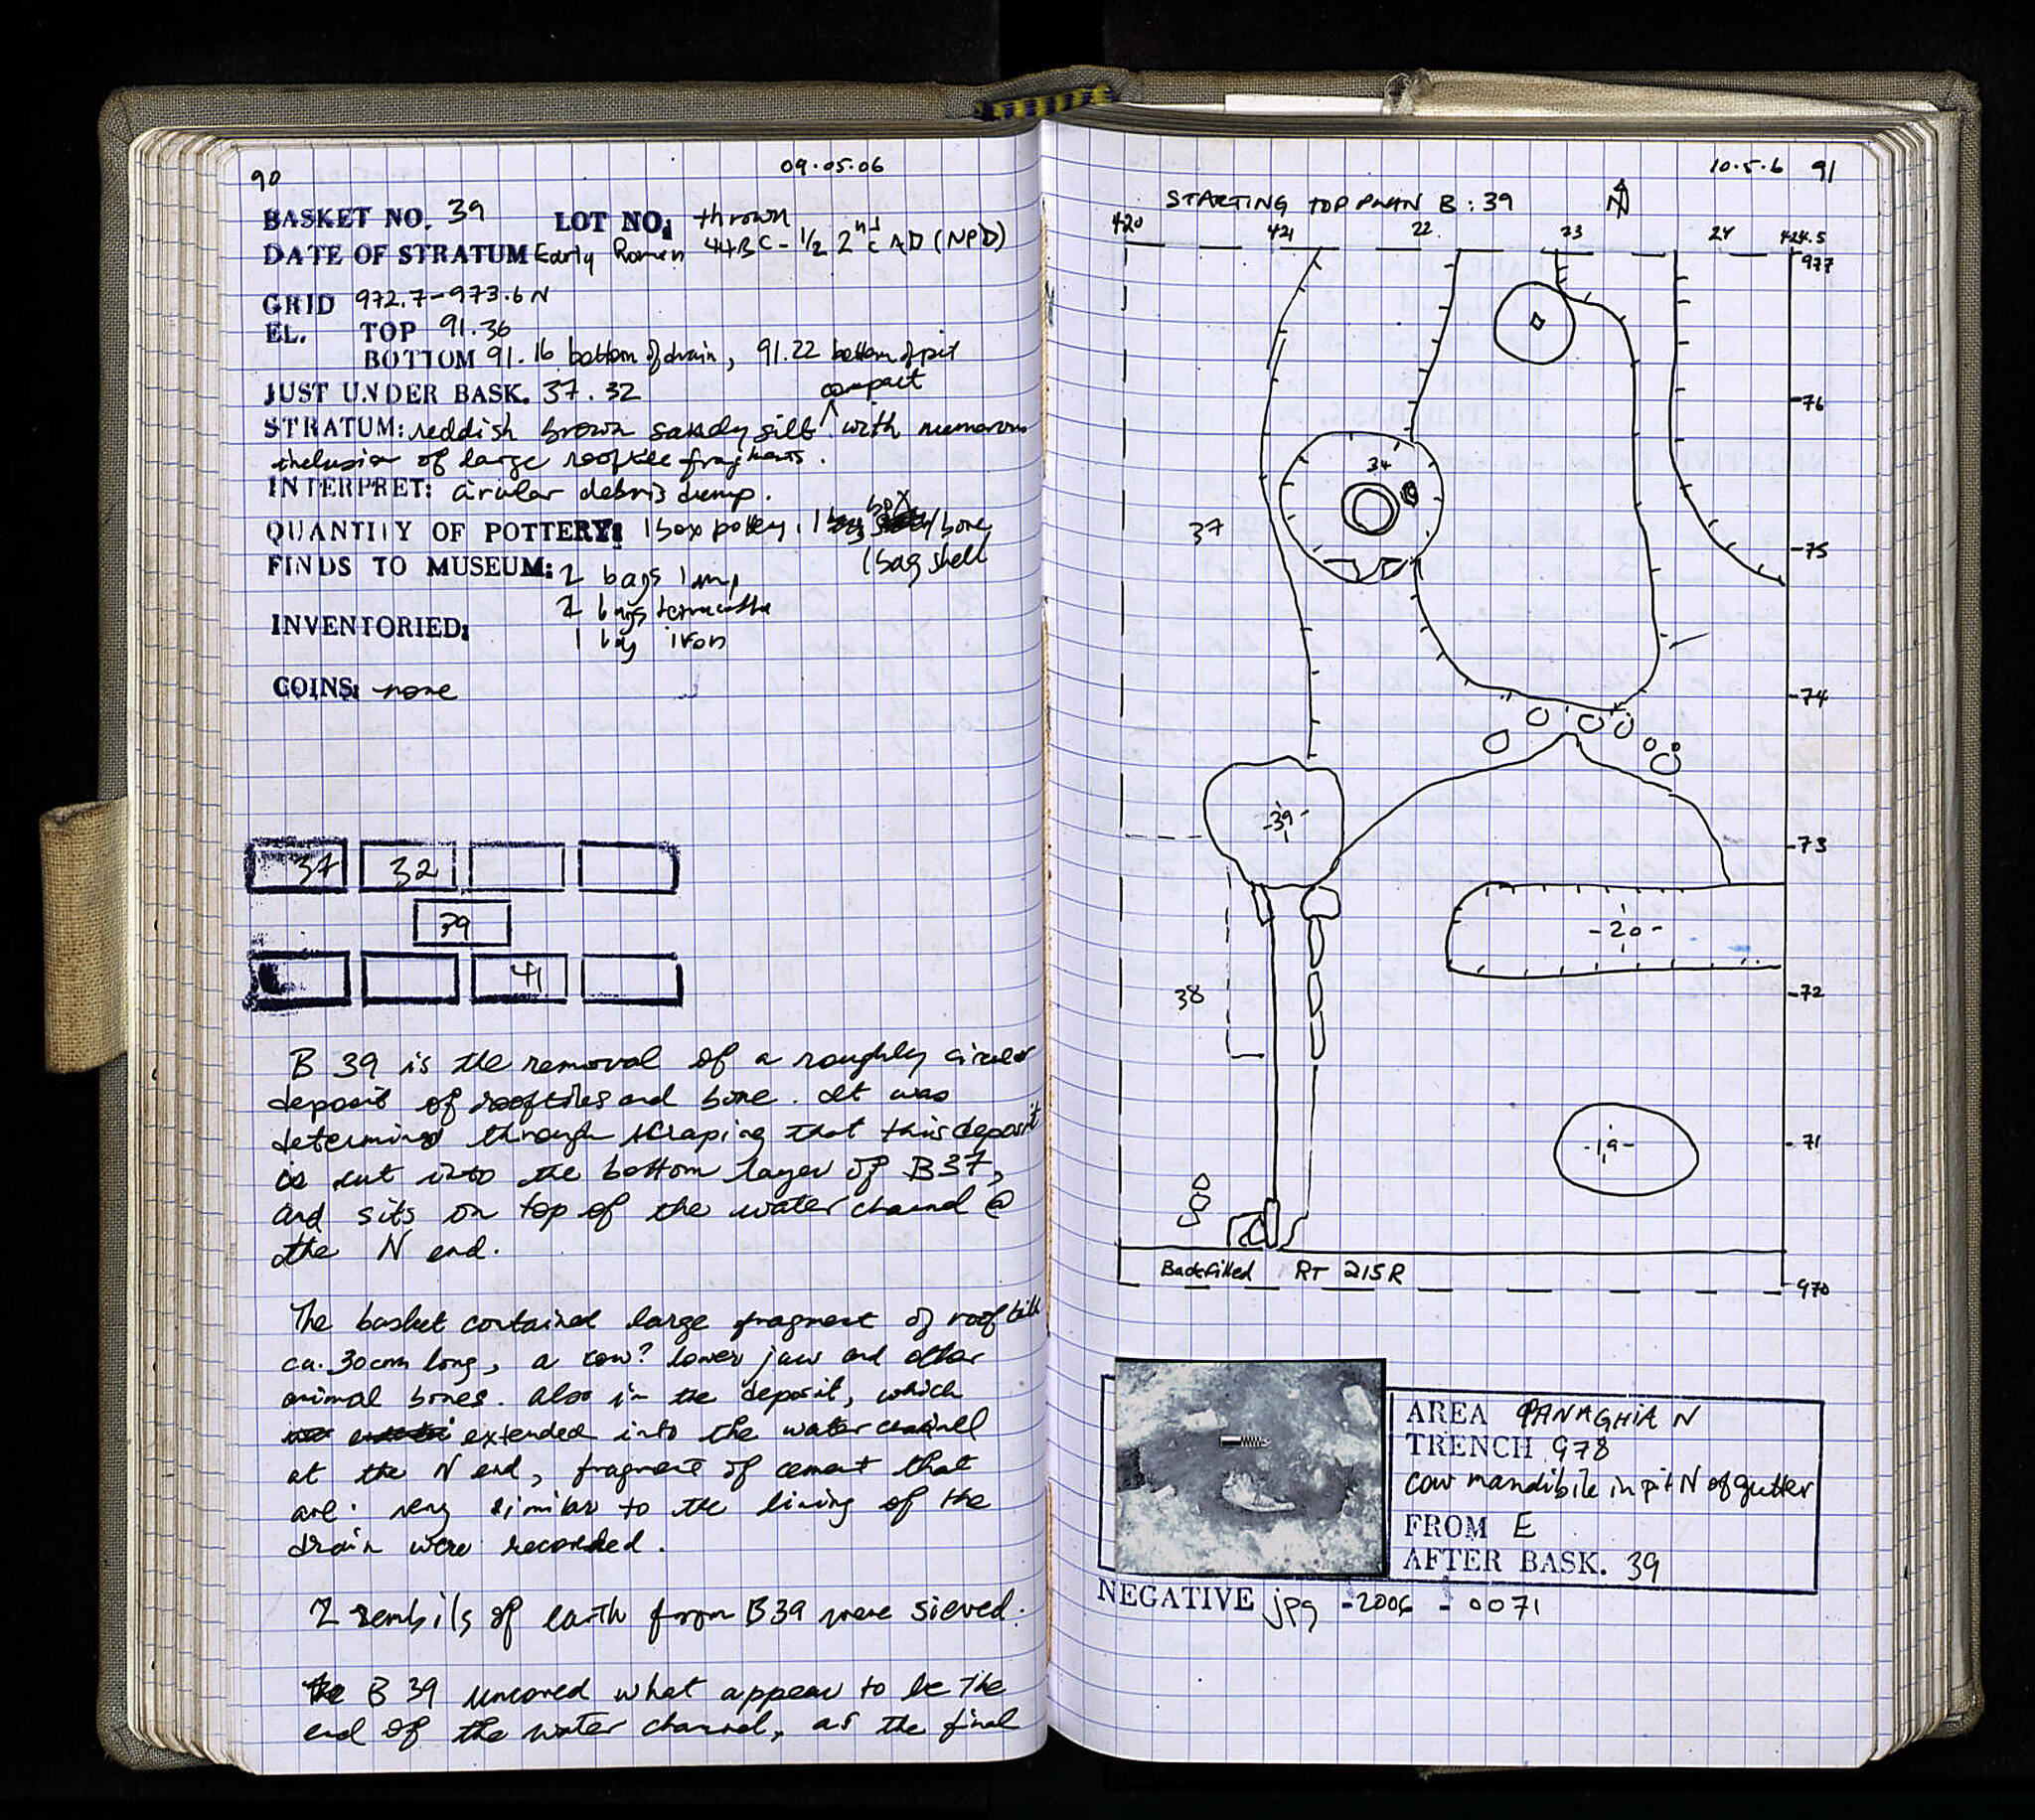 90
09.05.06
BASKET NO. 39 LOT NO: thrown
DATE OF STRATUM Early Roman 44BC - 1/2 2nd c AD (NPD)
GRID 972.7-973.6 N
EL. TOP 91.36
BOTTOM 91.16 bottom of drain, 91.22 bottom of pit
JUST UNDER BASK. 37.32
compact
STRATUM: reddish brown sandy silt ^ with numerous
inclusion of large rooftile fragments.
INTERPRET: circular debris dump.
box
QUANTITY OF POTTERY: 1 box pottery, 1 bone
1 bag shell
FINDS TO MUSEUM: 2 bags lamp
2 bags terracotta
INVENTORIED:
1 bag iron
COINS: none
37 32
39
41
B 39 is the removal of a roughly circular
deposit of rooftiles and bone. It was
determined through scraping that this deposit
is cut into the bottom layer of B37,
and sits on top of the water channel @
the N end.
The basket contained large fragment of roof tile
ca. 30cm long, a cow? lower jaw and other
animal bones. Also in the deposit, which
extended into the water channel
at the N end, fragment of cement that
are very similar to the lining of the
drain were recorded.
2 zembils of earth from B39 were sieved.
B 39 uncovred what appear to be the
end of the water channel, as the final
10.5.6 91
STARTING TOP PLAN B: 39 N
420 421 22 23 24 424.5
977
76
34
37
75
74
39
73
20
72
38
71
19
Backfilled RT 215R
970
AREA PANAGHIA N
TRENCH 978
cow mandibile in pit N of gutter
FROM E
AFTER BASK. 39
NEGATIVE jpg -2006 - 0071